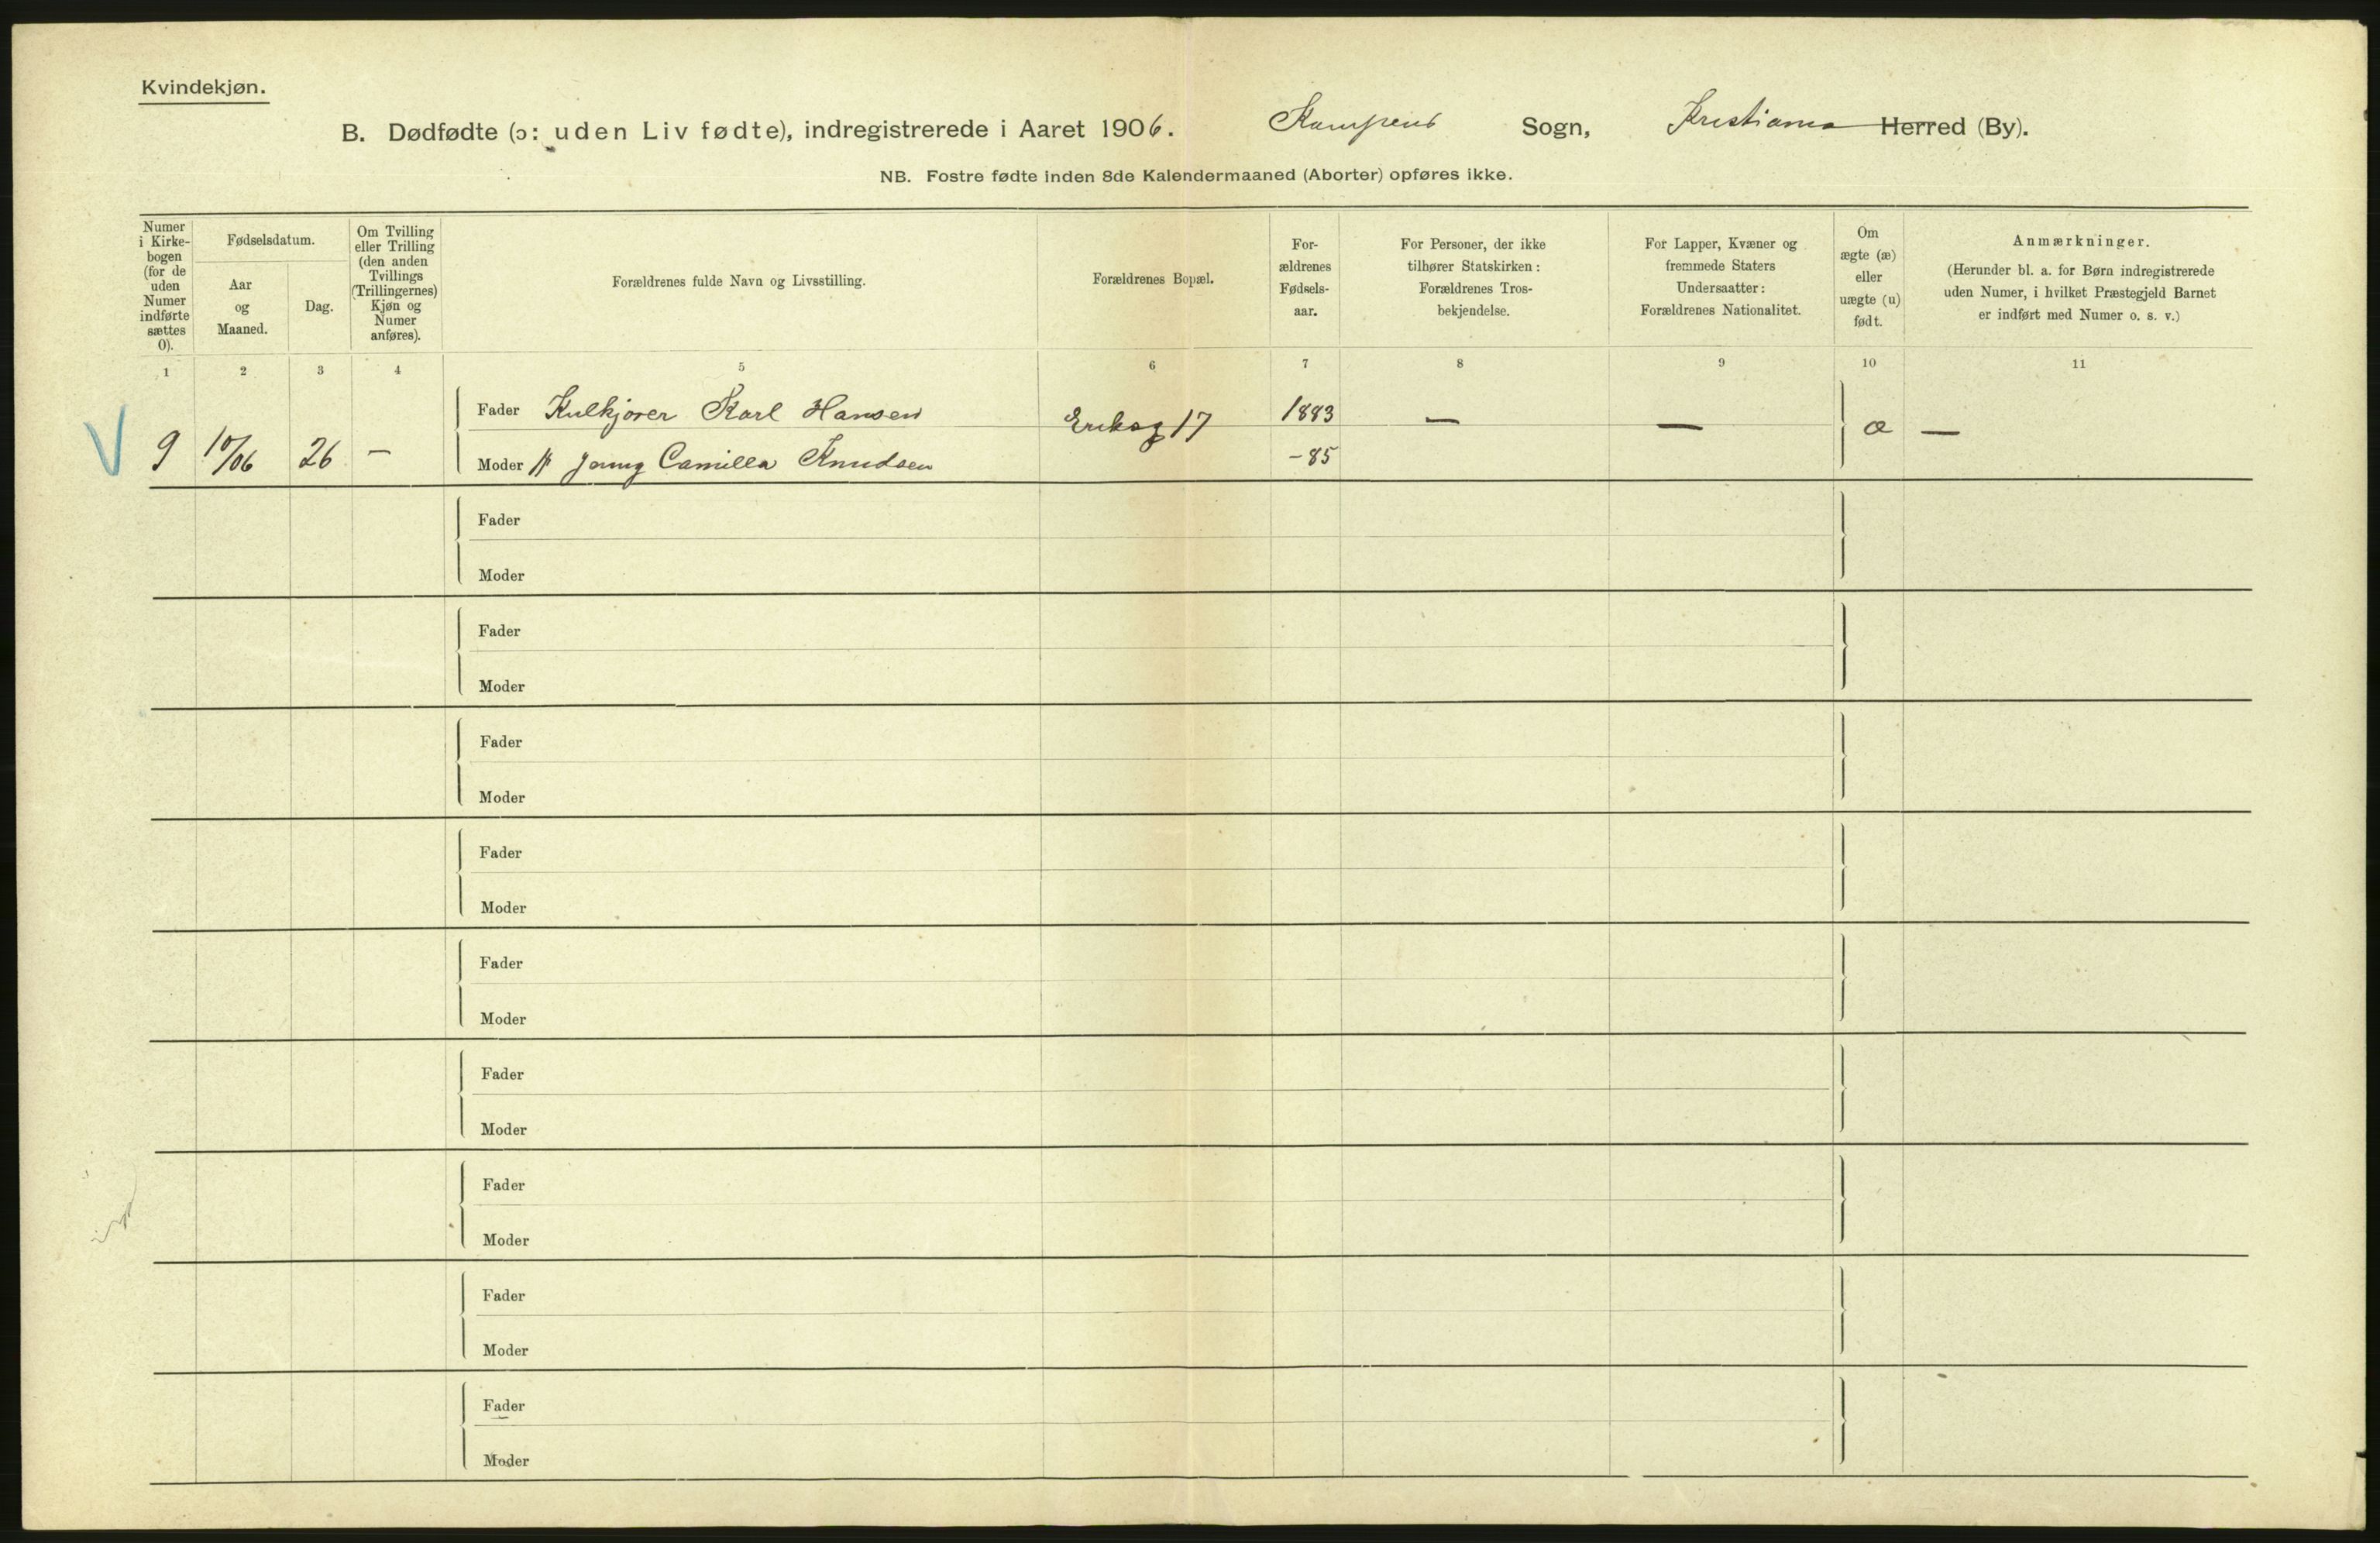 Kvindekjøn.
B. Dødfødte (ɔ: uden Liv fødte), indregistrerede i Aaret 1906. Kampens Sogn, Kristiania Herred (By).
NB. Fostre fødte inden 8de Kalendermaaned (Aborter) opføres ikke.
Numer i Kirkebogen (for de uden Numer indførte sættes 0).
Fødselsdatum.
Aar og Maaned.
Dag.
Om Tvilling eller Trilling (den anden Tvillings (Trillingernes) Kjøn og Numer anføres).
Forældrenes fulde Navn og Livsstilling.
Forældrenes Bopæl.
For-
ældrenes
Fødsels-
aar.
For Personer, der ikke
tilhører Statskirken:
Forældrenes Tros-
bekjendelse.
For Lapper, Kvæner og
fremmede Staters
Undersaatter:
Forældrenes Nationalitet.
Om
ægte (æ)
eller
uægte (u)
født.
Anmærkninger.
(Herunder bl. a. for Børn indregistrerede
uden Numer, i hvilket Præstegjeld Barnet
er indført med Numer o. s. v.)
1 2 3 4 5 6 7 8 9 10 11
Fader Kulkjører Karl Hansen Eriksg 17 1883 — — æ —
9 10/06 26 — Moder Jenny Camilla Knudsen - 85
Fader
Moder
Fader
Moder
Fader
Moder
Fader
Moder
Fader
Moder
Fader
Moder
Fader
Moder
Fader
Moder
Fader
Moder